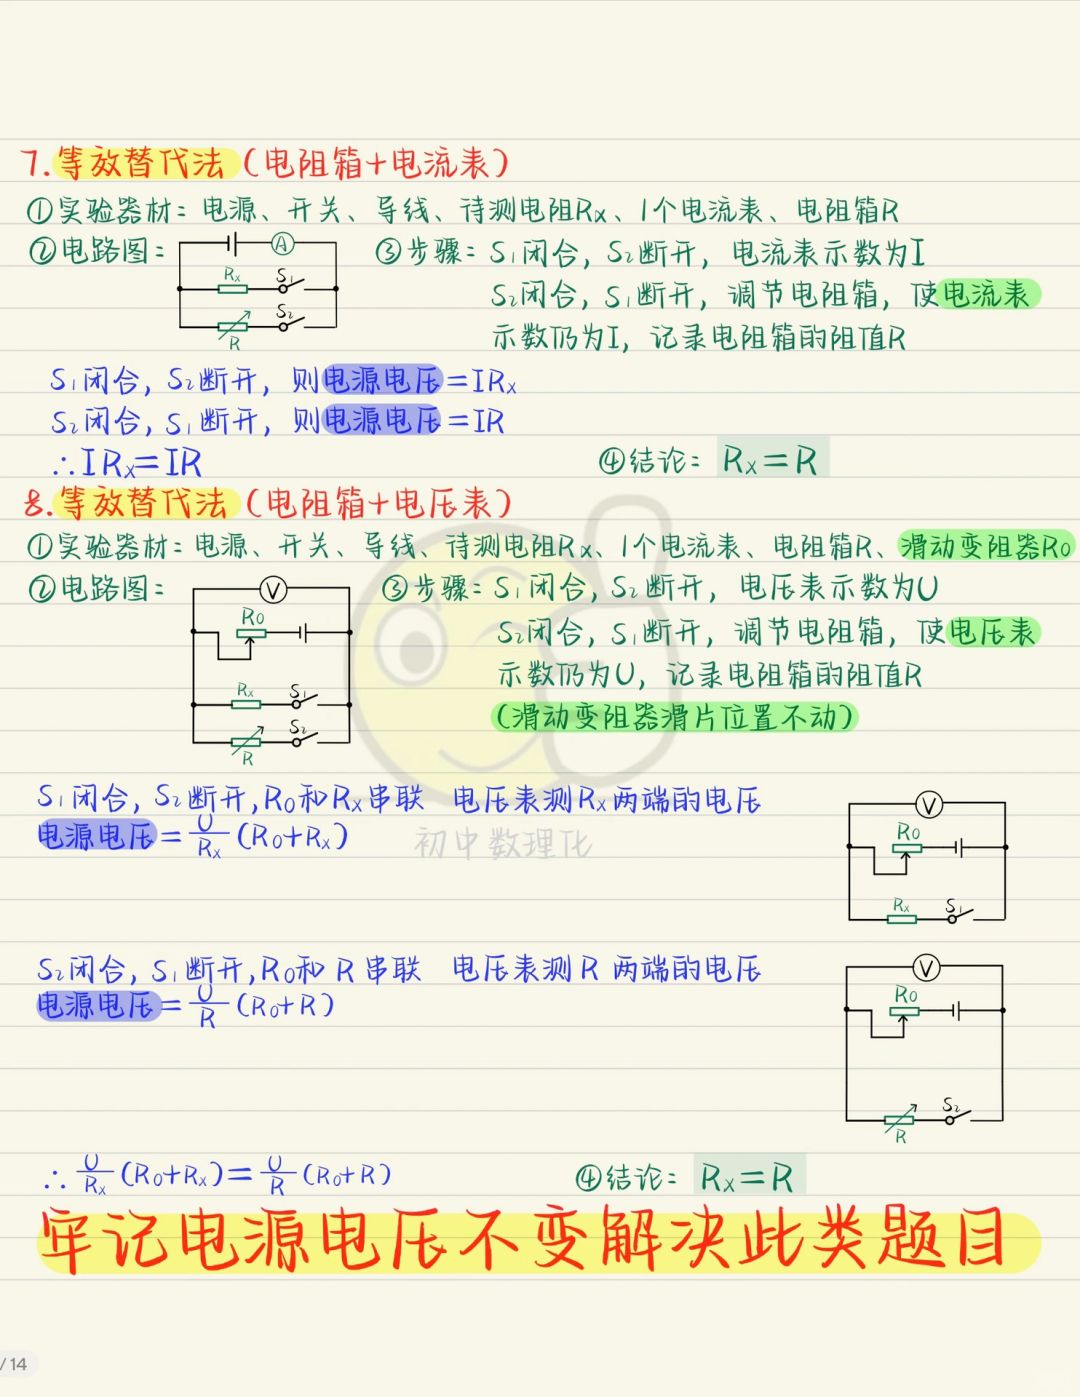 7.等效替代法(电阻箱+电流表)
①实验器材:电源、开关、导线、待测电阻Rx、1个电流表、电阻箱R
②电路图:
A
Rx
S₁
S₂
R
③步骤:S₁闭合,S₂断开,电流表示数为I
S₂闭合,S₁断开,调节电阻箱,使电流表
示数仍为I,记录电阻箱的阻值R
S₁闭合,S₂断开,则电源电压=IRx
S₂闭合,S₁断开,则电源电压=IR
∴IRx=IR
④结论:Rx=R
8.等效替代法(电阻箱+电压表)
①实验器材:电源、开关、导线、待测电阻Rx、1个电流表、电阻箱R、滑动变阻器R0
②电路图:
V
R0
Rx
S₁
S₂
R
③步骤:S₁闭合,S₂断开,电压表示数为U
S₂闭合,S₁断开,调节电阻箱,使电压表
示数仍为U,记录电阻箱的阻值R
(滑动变阻器滑片位置不动)
S₁闭合,S₂断开,R0和Rx串联 电压表测Rx两端的电压
电源电压=U/Rx(R0+Rx)
初中数理化
V
R0
Rx
S₁
S₂闭合,S₁断开,R0和R串联 电压表测R两端的电压
电源电压=U/R(R0+R)
V
R0
S₂
R
∴U/Rx(R0+Rx)=U/R(R0+R)
④结论:Rx=R
牢记电源电压不变解决此类题目
/14